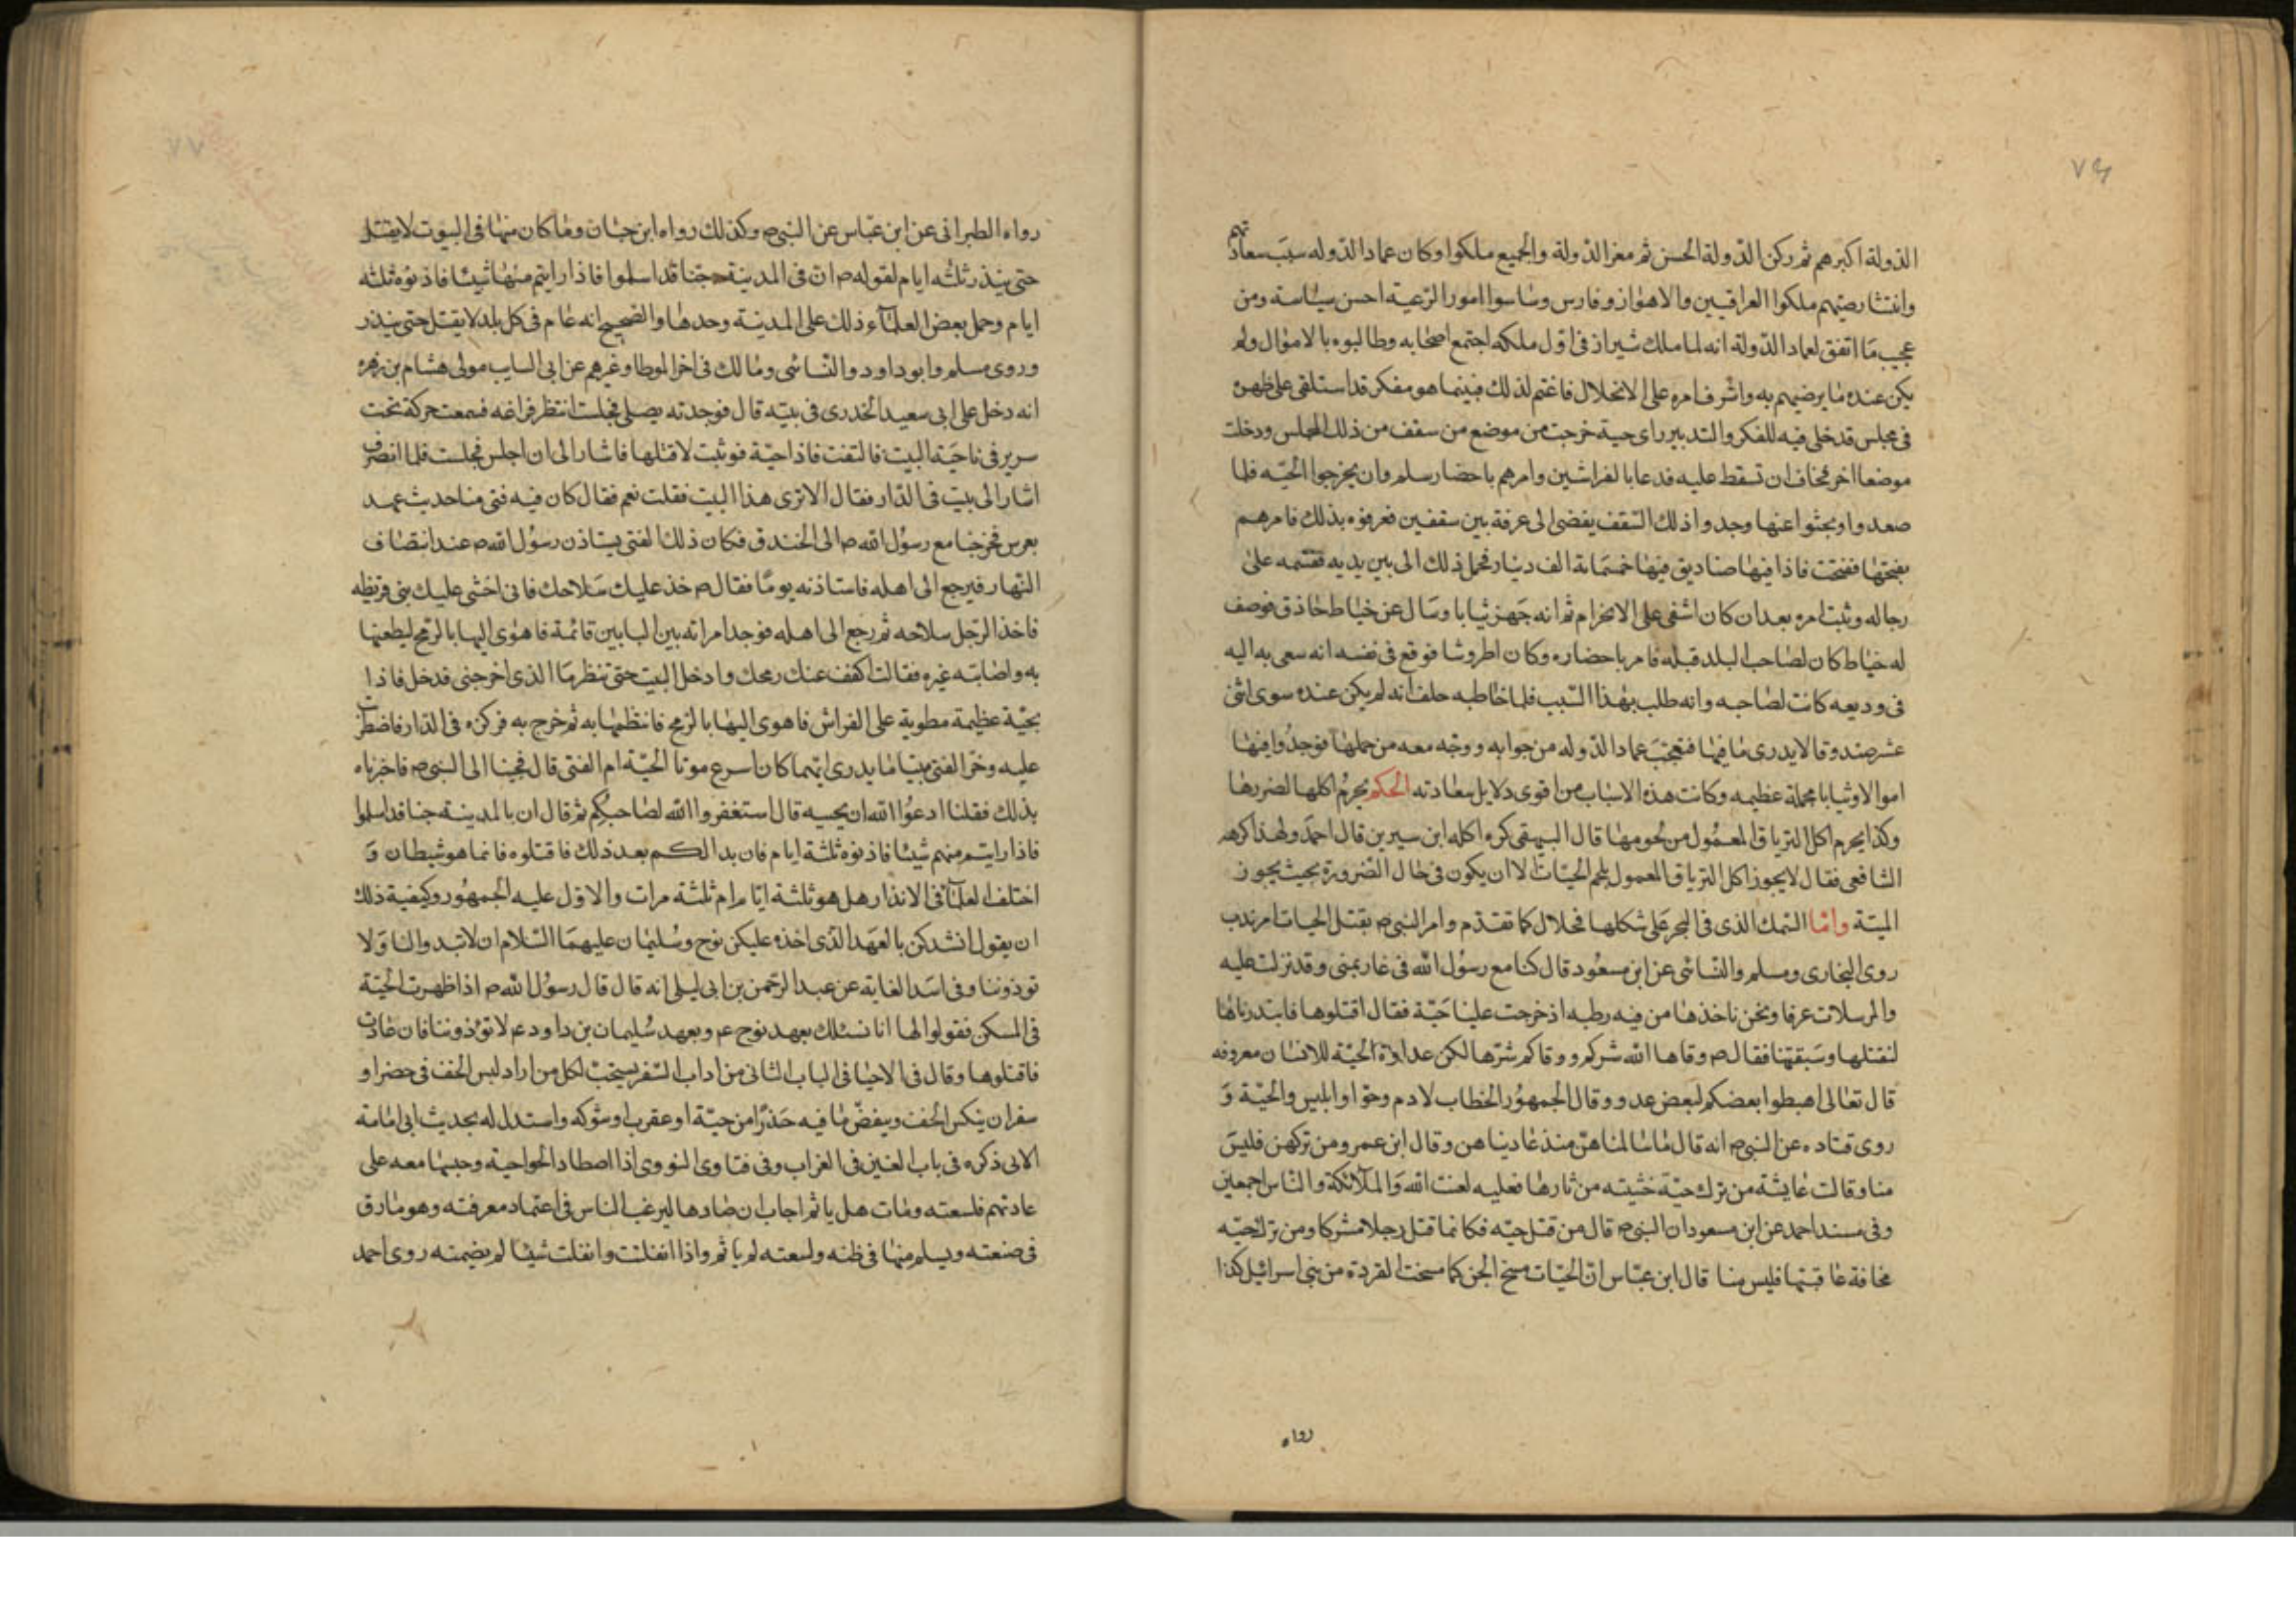 ٧٦
الدولة اكبرهم ثم ركن الدولة الحسن ثم معز الدولة والجميع ملكوا وكان عماد الدوله سبب سعادتهم
وانتشار صيتهم ملكوا العراقيين والاهواز وفارس وساسوا امور الرعية احسن سياسة ومن
عجيب ما اتفق لعماد الدولة انه لما ملك شيراز فى اول ملكه اجتمع اصحابه وطالبوه بالاموال ولم
يكن عنده ما يرضيهم به واشرف امره على الانحلال فاغتم لذلك فبينما هو مفكر قد استلقى على ظهره
فى مجلس قد خلى فيه للفكر والتدبير راى حية خرجت من موضع من سقف من ذلك المجلس ودخلت
موضعا اخر فخاف ان تسقط عليه فدعا بالفراشين وامرهم باحضار سلم وان يخرجوا الحيّه فلما
صعدوا وبحثوا عنها وجدوا ذلك السّقف يفضى الى غرفة بين سقفين فعرفوه بذلك فامرهم
بفتحها ففتحت فاذا فيها صناديق فيها خمسماية الف دينار فحمل ذلك الى بين يديه فقسمه على
رجاله وثبت امره بعد ان كان اشفى على الانخرام ثم انه جهز ثيابا وسال عن خياط حاذق فوصف
له خياط كان لصاحب البلد قبله فامر باحضاره وكان اطروشا فوقع فى نفسه انه سعى به اليه
فى وديعه كانت لصاحبه وانه طلب بهذا السّبب فلما خاطبه حلف انه لم يكن عنده سوى اثنى
عشر صندوقا لا يدرى ما فيها فتعجب عماد الدوله من جوابه ووجّه معه من حملها فوجدوا فيها
اموالا وثيابا بجملة عظيمه وكانت هذه الاسباب من اقوى دلايل سعادته الحكم يحرم اكلها لضررها
وكذا يحرم اكل الترياق المعمول من لحومها قال البيهقى كره اكله ابن سيرين قال احمد ولهذا كرهه
الشافعى فقال لا يجوز اكل الترياق المعمول بلحم الحيّات الا ان يكون فى حال الضرورة بحيث يجوز
الميتة وامّا السّمك الذى فى البحر على شكلها فحلال كما تقدّم وامر النبى ص بقتل الحيات امر ندب
روى البخارى ومسلم والنسائى عن ابن مسعود قال كنا مع رسول الله فى غار بمنى وقد نزلت عليه
والمرسلات عرفا ونحن ناخذها من فيه رطبه اذ خرجت علينا حيّة فقال اقتلوها فابتدرناها
لنقتلها وسبقتنا فقال ص وقاها الله شركم ووقاكم شرّها لكن عداوة الحيّة للانسان معروفه
قال تعالى اهبطوا بعضكم لبعض عدو وقال الجمهور الخطاب لادم وحوّا وابليس والحيّة و
روى قتاده عن النبى ص انه قال ما سالمناهن منذ عاديناهن وقال ابن عمر ومن تركهن فليس
منا وقالت عايشة من ترك حيّة خشيته من ثارها فعليه لعنت الله والملائكة والناس اجمعين
وفى مسند احمد عن ابن مسعود ان النبى ص قال من قتل حيّه فكانما قتل رجلا مشركا ومن ترك حيّه
مخافة عاقبتها فليس منا قال ابن عباس ان الحيّات مسخ الجن كما مسخت القردة من بنى اسرائيل كذا
رواه
٧٧
رواه الطبرانى عن ابن عباس عن النبى ص وكذلك رواه ابن حبّان وما كان منها فى البيوت لا يقتل
حتى ينذر ثلثه ايام لقوله ص ان فى المدينة جنا قد اسلموا فاذا رايتم منها شيئا فاذنوه ثلثه
ايام وحمل بعض العلمآء ذلك على المدينة وحدها والصحيح انه عام فى كل بلد لا يقتل حتى ينذر
وروى مسلم وابو داود والنسائى ومالك فى اخر الموطا وغيرهم عن ابى السايب مولى هشام بن زهره
انه دخل على ابى سعيد الخدرى فى بيته قال فوجدته يصلى فجلست انتظر فراغه فسمعت حركة تحت
سرير فى ناحية البيت فالتفت فاذا حيّة فوثبت لاقتلها فاشار الى ان اجلس فجلست فلما انصرف
اشار الى بيت فى الدار فقال الا ترى هذا البيت فقلت نعم فقال كان فيه فتى منا حديث عهد
بعرس فخرجنا مع رسول الله ص الى الخندق فكان ذلك الفتى يستاذن رسول الله ص عند انتصاف
النّهار فيرجع الى اهله فاستاذنه يوما فقال ص خذ عليك سلاحك فانى اخشى عليك بنى قريظه
فاخذ الرّجل سلاحه ثم رجع الى اهله فوجد امراته بين البابين قائمة فاهوى اليها بالرّمح ليطعنها
به واصابته غيره فقالت اكفف عنك رمحك وادخل البيت حتى تنظر ما الذى اخرجنى فدخل فاذا
بحيّة عظيمة مطوية على الفراش فاهوى اليها بالرمح فانتظمها به ثم خرج به فركزه فى الدار فاضطربت
عليه وخرّ الفتى ميتا ما يدرى ايهما كان اسرع موتا الحيّة ام الفتى قال فجينا الى النبى ص فاخبرناه
بذلك فقلنا ادعوا الله ان يحييه قال استغفروا الله لصاحبكم ثم قال ان بالمدينة جنا قد اسلموا
فاذا رايتم منهم شيئا فاذنوه ثلثة ايام فان بدا لكم بعد ذلك فاقتلوه فانما هو شيطان و
اختلف العلمآ فى الانذار هل هو ثلثة ايام ام ثلثة مرات والاول عليه الجمهور وكيفية ذلك
ان يقول انشدكن بالعهد الذى اخذه عليكن نوح وسليمان عليهما السّلام ان لا تبدوا لنا ولا
توذوننا وفى اسد الغابة عن عبد الرّحمن بن ابى ليلى انه قال قال رسول الله ص اذا ظهرت الحيّة
فى المسكن فقولوا لها انا نسئلك بعهد نوح ع م وبعهد سليمان بن داود ع م لا تؤذوننا فان عادت
فاقتلوها وقال فى الاحيا فى الباب الثانى من اداب السّفر يستحبّ لكل من اراد لبس الخف فى حضر او
سفر ان ينكس الخف وينفض ما فيه حذرا من حيّة او عقرب او شوكه واستدل له بحديث ابى امامة
الاتى ذكره فى باب الغين فى الغراب وفى فتاوى النووى اذا اصطاد الحوا حية وحبسها معه على
عادتهم فلسعته ومات هل ياثم اجاب ان صادها ليرغب الناس فى اعتماد معرفته وهو صادق
فى صنعته ويسلم منها فى ظنه ولسعته لم ياثم واذا انفلتت واتلفت شيئا لم يضمنه روى احمد